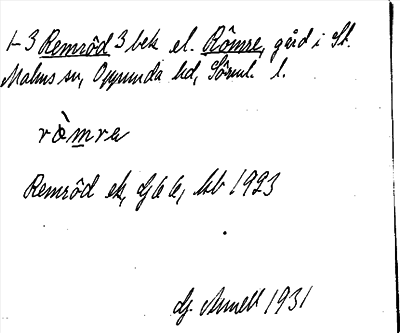 1-3 Remröd 3 bek el. Römre, gård i St.
Malms sn, Oppunda hd, Sörml. l.
ròmra
Remröd ek, Gj 66, kb 1923
Gj. Annell 1931